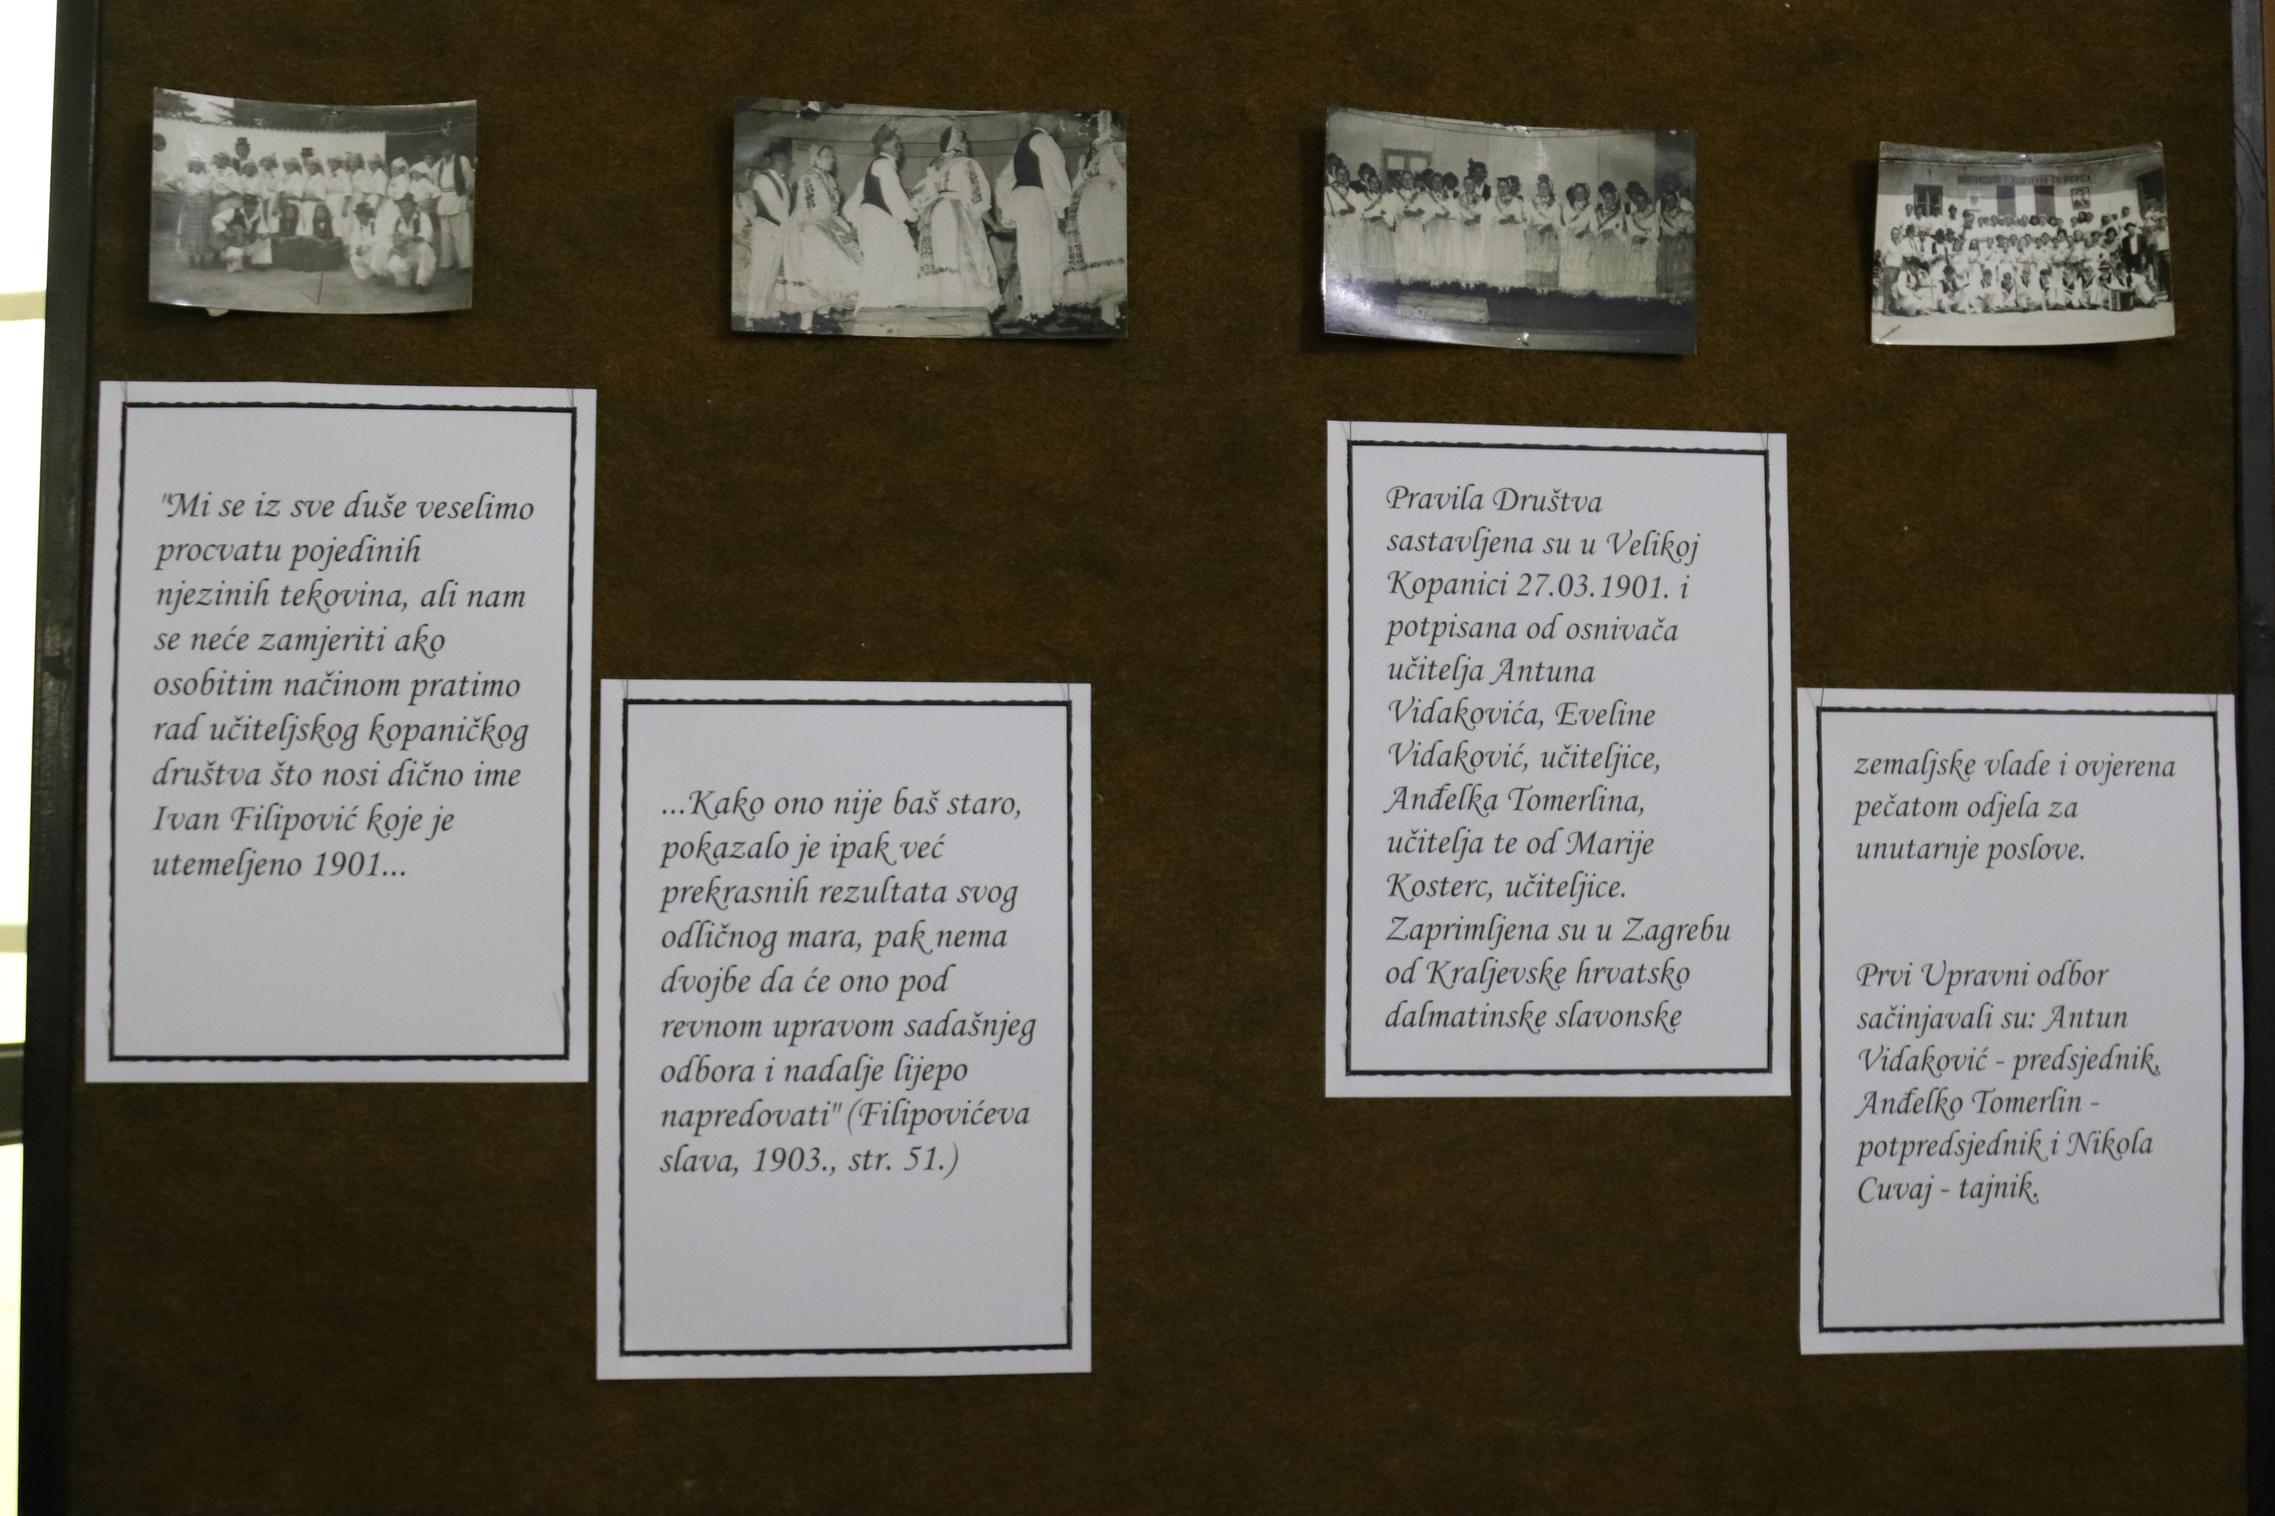 "Mi se iz sve duše veselimo
procvatu pojedinih
njezinih tekovina, ali nam
se neće zamjeriti ako
osobitim načinom pratimo
rad učiteljskog kopaničkog
društva što nosi dično ime
Ivan Filipović koje je
utemeljeno 1901...
...Kako ono nije baš staro,
pokazalo je ipak već
prekrasnih rezultata svog
odličnog mara, pak nema
dvojbe da će ono pod
revnom upravom sadašnjeg
odbora i nadalje lijepo
napredovati" (Filipovićeva
slava, 1903., str. 51.)
Pravila Društva
sastavljena su u Velikoj
Kopanici 27.03.1901. i
potpisana od osnivača
učitelja Antuna
Vidakovića, Eveline
Vidaković, učiteljice,
Anđelka Tomerlina,
učitelja te od Marije
Kosterc, učiteljice.
Zaprimljena su u Zagrebu
od Kraljevske hrvatsko
dalmatinske slavonske
zemaljske vlade i ovjerena
pečatom odjela za
unutarnje poslove.
Prvi Upravni odbor
sačinjavali su: Antun
Vidaković - predsjednik,
Anđelko Tomerlin -
potpredsjednik i Nikola
Cuvaj - tajnik.